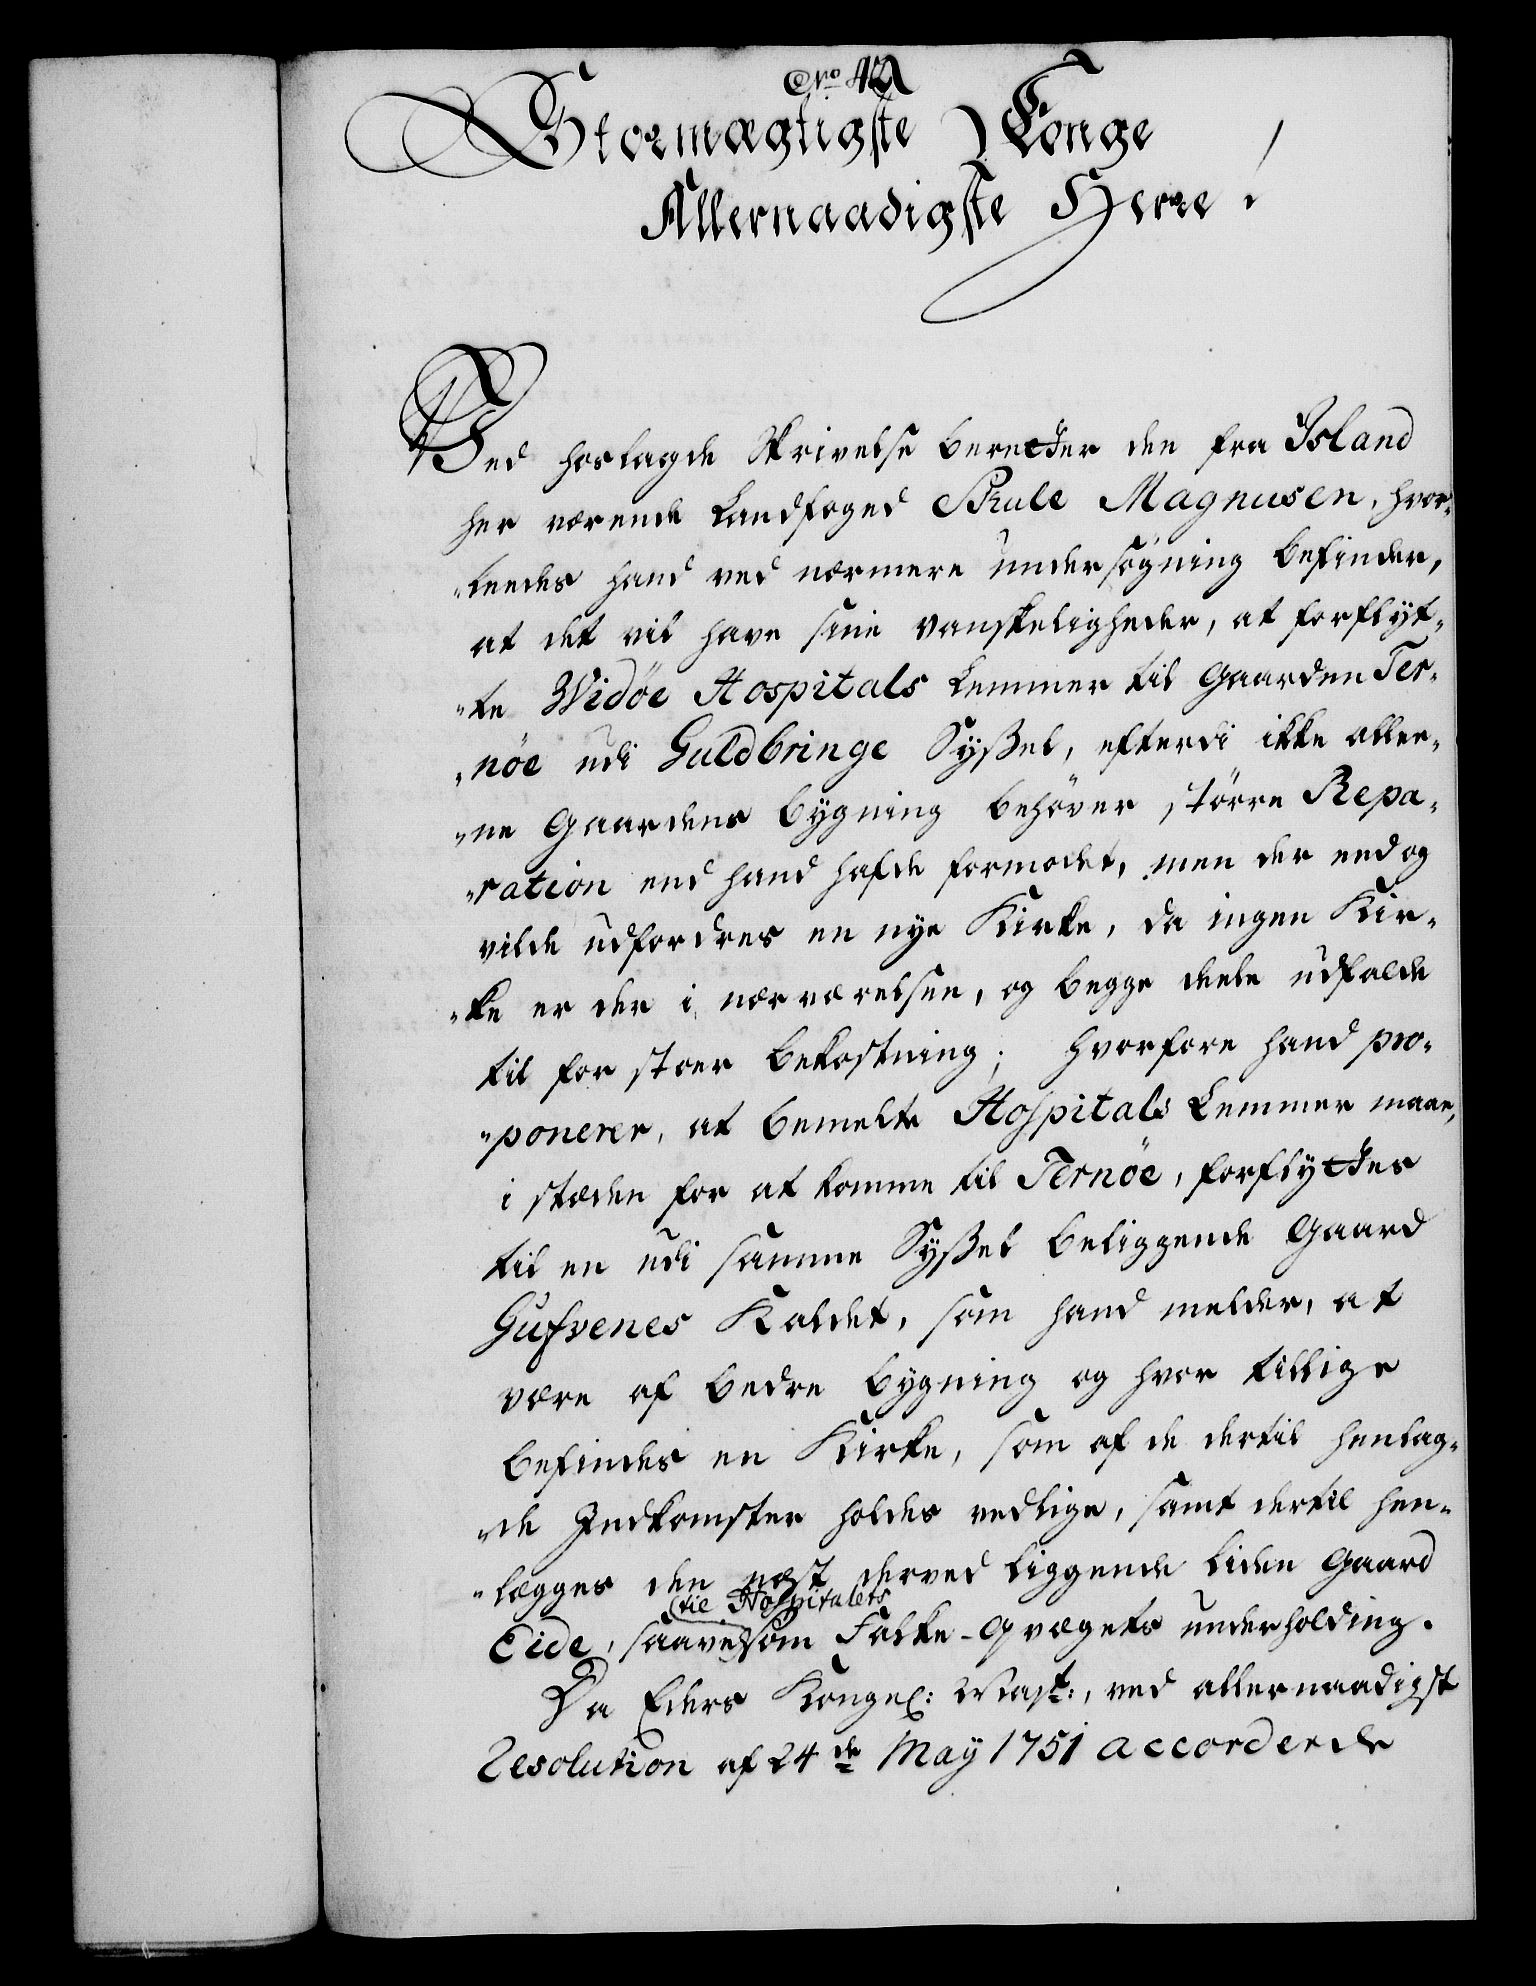 No 42
Stormægtigste Konge
Allernaadigste Herre!
Ved hoslagde Skrivelse beretter den fra Island
her værende Landfoged Skule Magnusen, hvor-
-leedes hand ved nærmere undersögning befinder,
at det vil have sine vanskeligheder, at forflyt-
-te Widöe Hospitals Lemmer til Gaarden Ter-
-nöe udi Guldbringe Syssel, efterdi ikke allee-
-ne Gaardens bygning behöver större Repa-
-ration end hand hafde formodet, men der endog
vilde udfordres en nye Kirke, da ingen Kir-
-ke er der i nærværelsen, og begge deele udfalde
til for stoer bekostning; hvorfore hand pro-
-ponerer, at bemelte Hospitals Lemmer maae,
i stæden for at komme til Ternöe, forflyttes
til en udi samme Syssel beliggende Gaard
Gufvenes Kaldet, som hand melder, at
være af bedre bygning og hvor tillige
befindes en Kirke, som af de dertil henlag-
-de Indkomster holdes vedlige, samt dertil hen-
-lægges den næst derved liggende liden Gaard
Eide, saavel til Hospitalets som Falke-Qvægets underholding.
Da Eders Kongel: Mayt:, ved allernaadigst
Resolution af 24de May 1751 accorderede